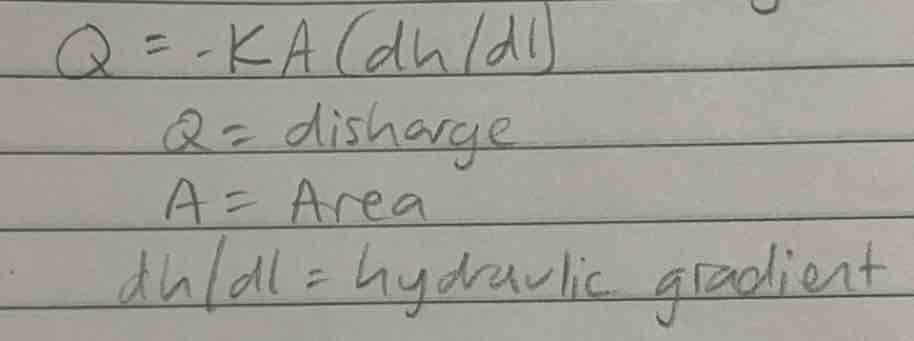 Q = -KA(dh/dl)
Q = disharge
A = Area
dh/dl = hydraulic gradient